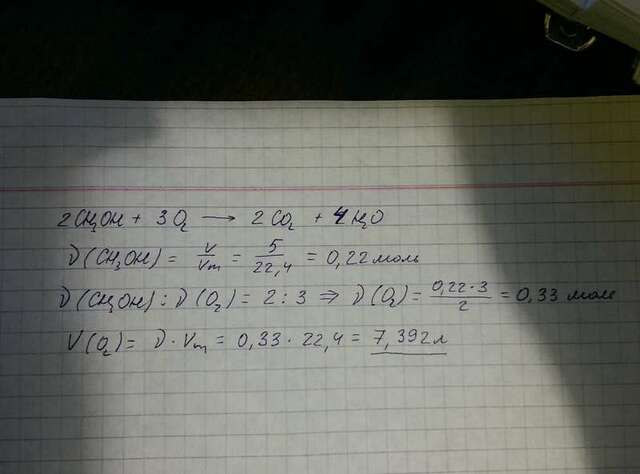 2CH₃OH + 3O₂ → 2CO₂ + 4H₂O
ν(CH₃OH) = V/Vm = 5/22,4 = 0,22 моль
ν(CH₃OH) : ν(O₂) = 2 : 3 ⇒ ν(O₂) = 0,22·3/2 = 0,33 моль
V(O₂) = ν · Vm = 0,33 · 22,4 = 7,392 л